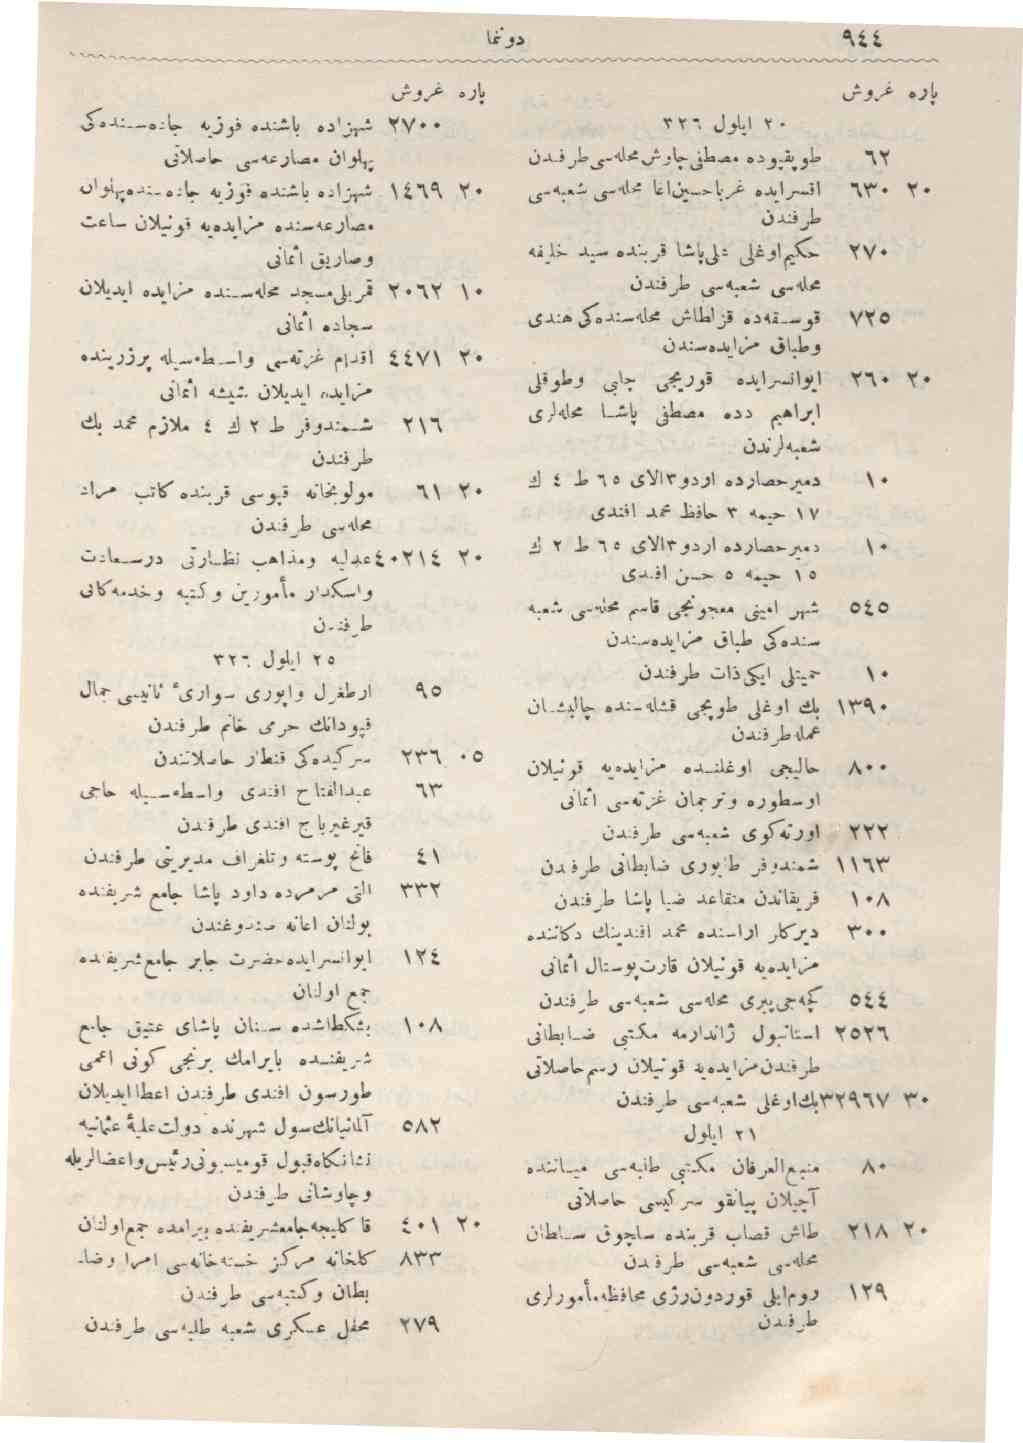 ٩٤٤
دوننما
پاره غروش
٢٠ ايلول ٣٢٦
٦٢ طوپقپوده مصطفى چاوش محله‌سى طرفندن
٢٠ ٦٣٠ اقسرايده غرباحسين‌اغا محله‌سى شعبه‌سى
طرفندن
٢٧٠ حكيم‌اوغلى على‌پاشا قربنده سيد خليفه
محله‌سى شعبه‌سى طرفندن
٧٢٥ قوسقه‌ده قزلطاش محله‌سنده‌كى هندى
وطباق مزايده‌سندن
٢٠ ٢٦٠ ايوانسرايده قوريجى چلبى وطوقلى
ابراهيم دده مصطفى پاشا محله‌لرى
شعبه‌لرندن
١٠ دميرحصارده اردو٣الاى ٦٥ ط ٤ ك
١٧ خيمه ٣ حافظ محمد افندى
١٠ دميرحصارده اردو٣الاى ٦٥ ط ٢ ك
١٥ خيمه ٥ حسن افندى
٥٤٥ شهر امينى معجونجى قاسم محله‌سى شعبه
سنده‌كى طباق مزايده‌سندن
١٠ حميتلى ايكى‌ذات طرفندن
١٣٩٠ بك اوغلى طوپجى قشله‌سنده چاليشان
عمله‌طرفندن
٨٠٠ حاليجى اوغلنده مزايده‌يه قونيلان
اوسطوره وترجمان غزته‌سى اثمانى
٢٢٢ اورته‌كوى شعبه‌سى طرفندن
١١٦٣ شمندوفر طابورى ضابطانى طرفندن
١٠٨ فريقاندن متقاعد ضيا پاشا طرفندن
٣٠٠ ديركلر اراسنده محمد افندينك دكاننده
مزايده‌يه قونيلان قارت‌پوستال اثمانى
٥٤٤ كچه‌جى‌پيرى محله‌سى شعبه‌سى طرفندن
٢٥٢٦ استانبول ژاندارمه مكتبى ضابطانى
طرفندن‌مزايده‌يه قونيلان رسم‌حاصلاتى
٣٠ ٣٢٩٦٧ بك‌اوغلى شعبه‌سى طرفندن
٢١ ايلول
٨٠ منبع‌العرفان مكتبى طلبه‌سى مياننده
آچيلان پيانقو سركيسى حاصلاتى
٢٠ ٢١٨ طاش قصاب قربنده سلچوق سلطان
محله‌سى شعبه‌سى طرفندن
١٢٩ روم‌ايلى قوردون‌رژى محافظه‌مأمورلرى
طرفندن
پاره غروش
٢٧٠٠ شهزاده باشنده فوزيه جاده‌سنده‌كى
پهلوان مصارعه‌سى حاصلاتى
٢٠ ١٤٦٩ شهزاده باشنده فوزيه جاده‌سنده‌پهلوان
مصارعه‌سنده مزايده‌يه قونيلان ساعت
وصاريق اثمانى
١٠ ٢٠٦٢ قمريلى‌مسجد محله‌سنده مزايده ايديلان
سجاده اثمانى
٢٠ ٤٤٧١ اقدام غزته‌سى واسطه‌سيله پرزرينده
مزايده ايديلان شيشه اثمانى
٢١٦ شمندوفر ط ٢ ك ٤ ملازم محمد بك
طرفندن
٢٠ ٦١ مولويخانه قپوسى قربنده كاتب مراد
محله‌سى طرفندن
٢٠ ٤٠٢١٤ عدليه ومذاهب نظارتى درسعادت
واسكدار مأمورين وكتبه وخدمه‌كانى
طرفندن
٢٥ ايلول ٣٢٦
٩٥ ارطغرل واپورى سوارىء ثانيسى جمال
قپودانك حرمى خانم طرفندن
٠٥ ٢٣٦ سركيده‌كى قنطار حاصلاتندن
٦٣ عبدالفتاح افندى واسطه‌سيله حاجى
قيرغيزباج افندى طرفندن
٤١ فاتح پوسته وتلغراف مديريتى طرفندن
٣٣٢ التى مرمرده داود پاشا جامع شريفنده
بولنان اعانه صندوغندن
١٢٤ ايوانسرايده‌حضرت جابر جامع‌شريفنده
جمع اولنان
١٠٨ بشكطاشده سنان پاشاى عتيق جامع
شريفنده بايرامك برنجى كونى اعمى
طورسون افندى طرفندن اعطاايديلان
٥٨٢ آلمانيانك‌سول شهرنده دولت‌عليۀ عثمانيه
نشانكاه‌قبول قوميسيونى‌رئيس‌واعضالريله
وچاوشانى طرفندن
٢٠ ٤٠١ قاكليجه‌جامعشريفنده بيرامده جمع‌اولنان
٨٣٣ كلخانه مركز خسته‌خانه‌سى امرا وضا-
بطان وكتبه‌سى طرفندن
٢٧٩ محفل عسكرى شعبه طلبه‌سى طرفندن